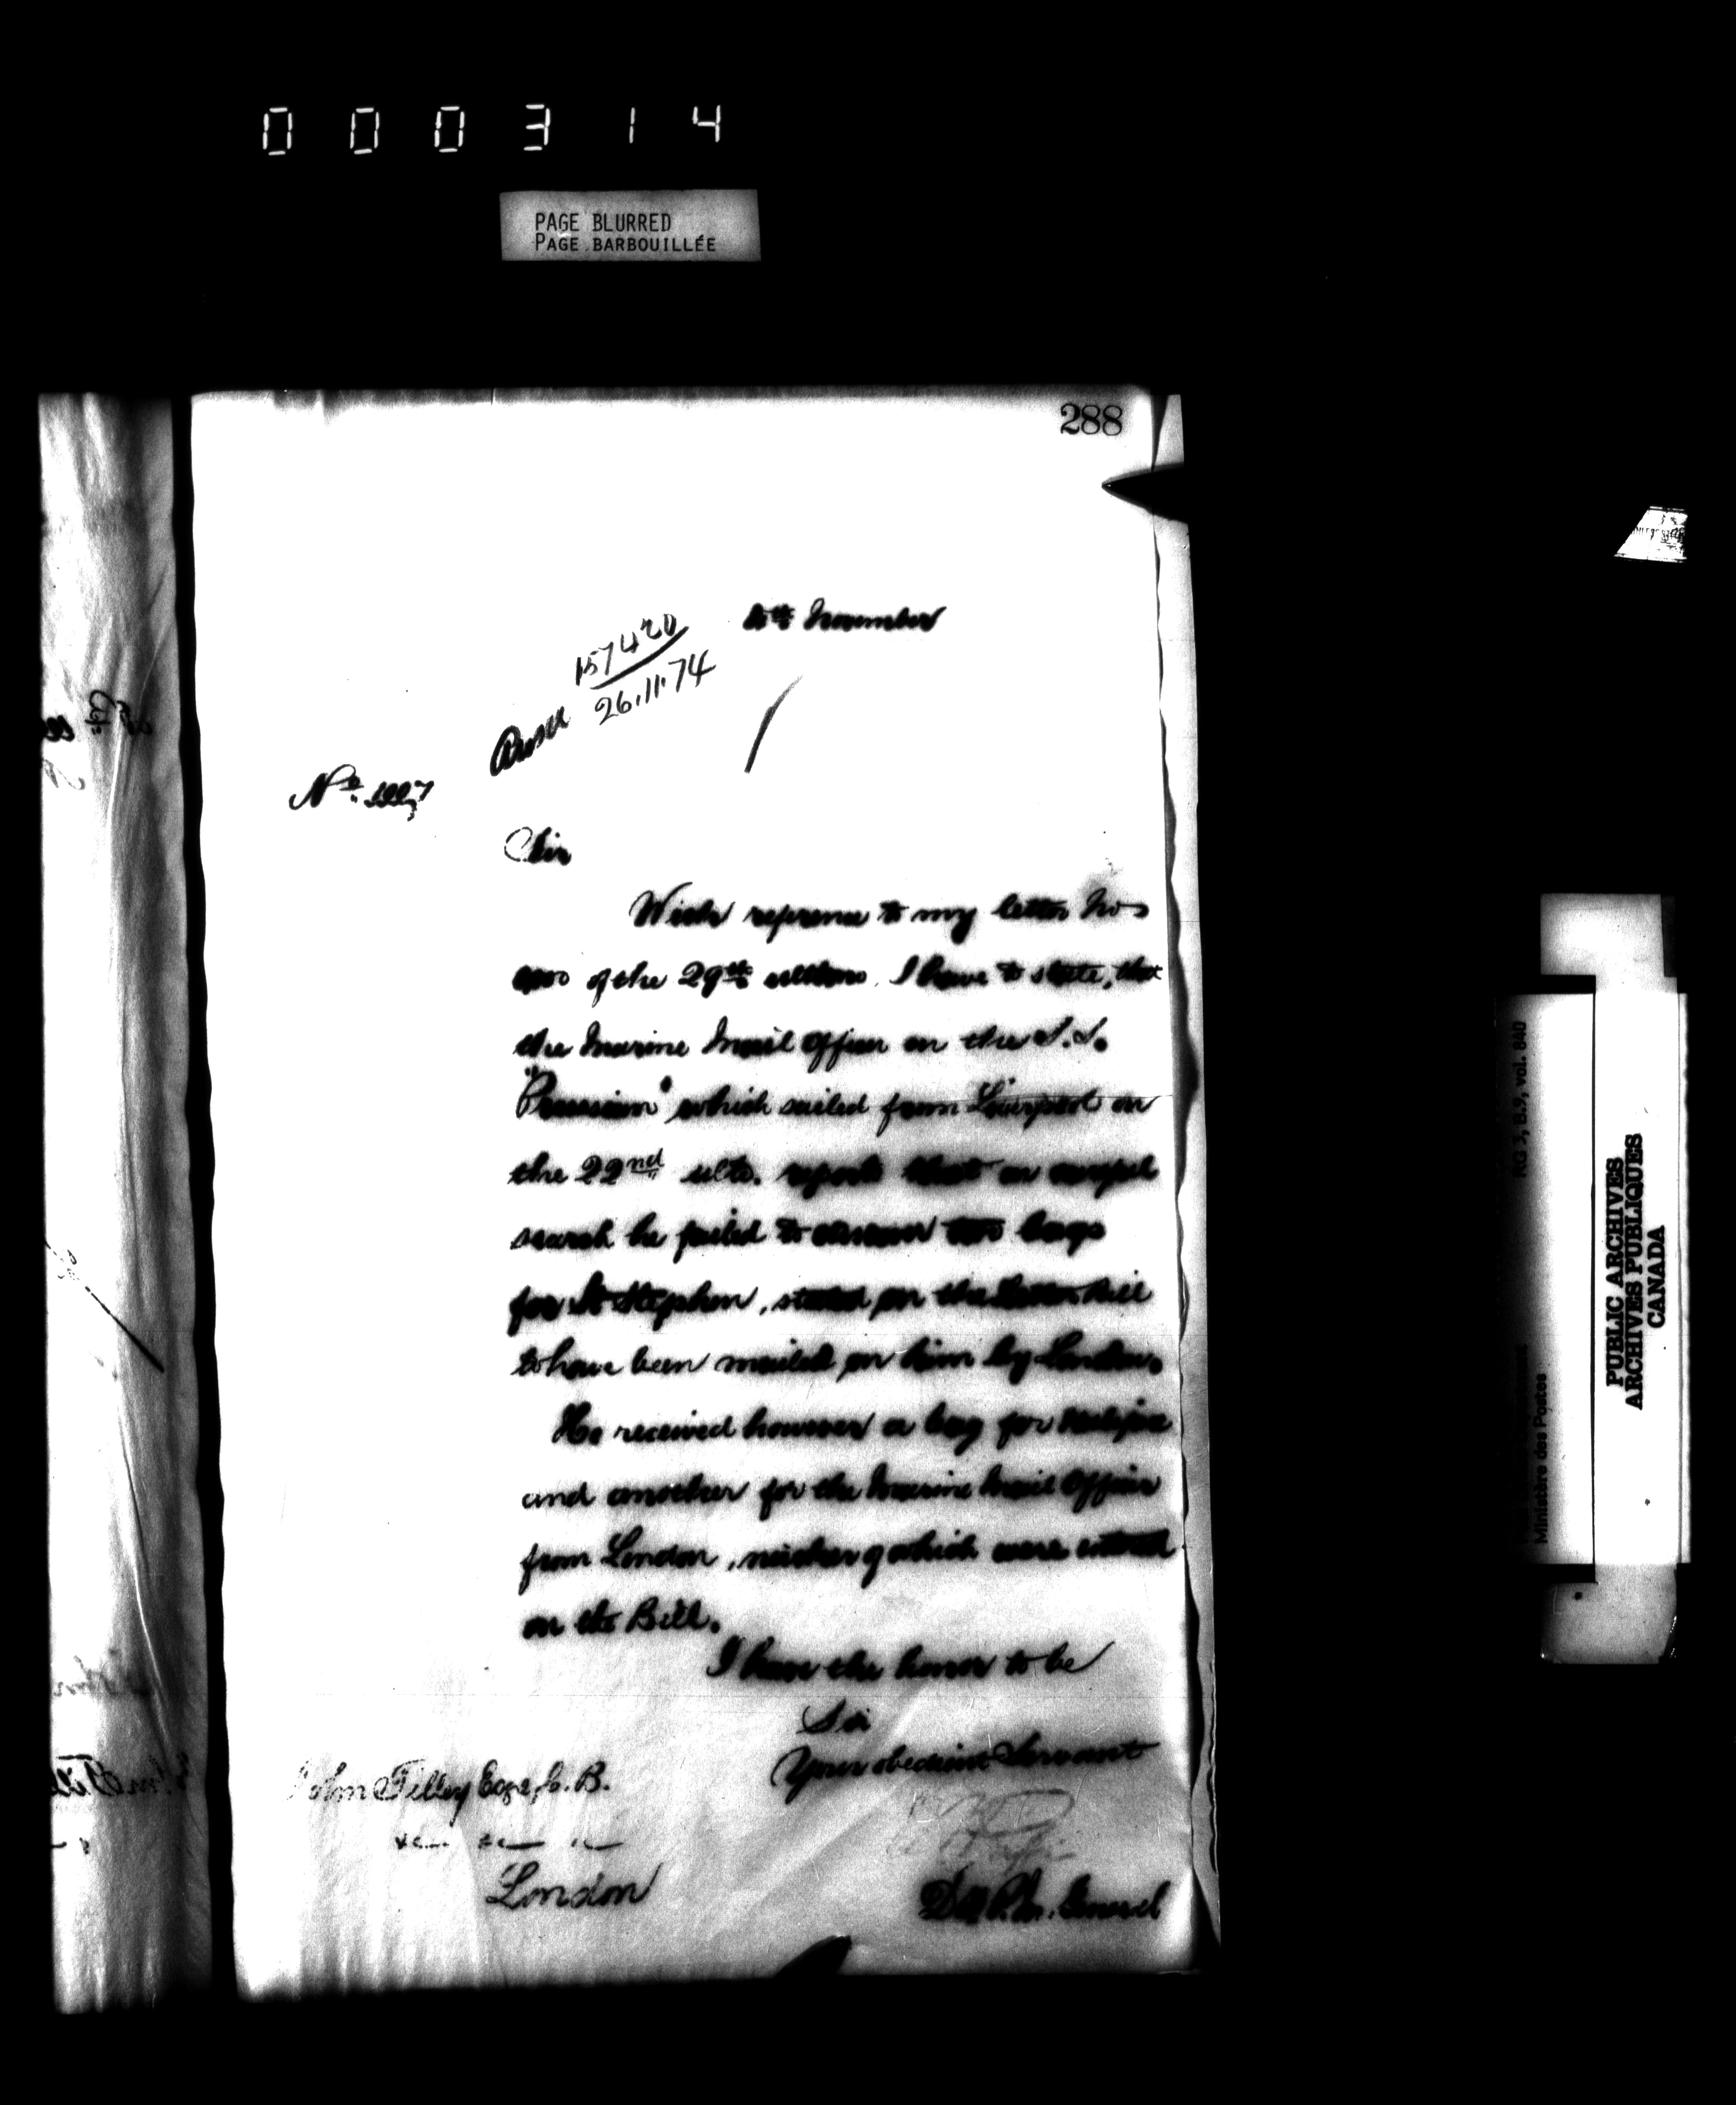 000314
PAGE BLURRED
PAGE BARBOUILLÉE
288
November
157420
26.11.74
Sir
With reference to my letter No
of the 29th ultimo. I have to state, that
the Marine Mail Officer on the S.S.
"Prussian" which sailed from Liverpool on
the 22nd ulto. reports that on careful
search he failed to discover two bags
for St Stephen, stated on the Letter Bill
to have been mailed on him by London.
He received however a bag for Halifax
and another for the Marine Mail Officer
from London, neither of which were entered
on the Bill.
I have the honor to be
Sir
Your obedient Servant
John Tilley Esqre C.B.
London
P.M. General
RG 3, B.3, vol. 840
Ministère des Postes
PUBLIC ARCHIVES
ARCHIVES PUBLIQUES
CANADA